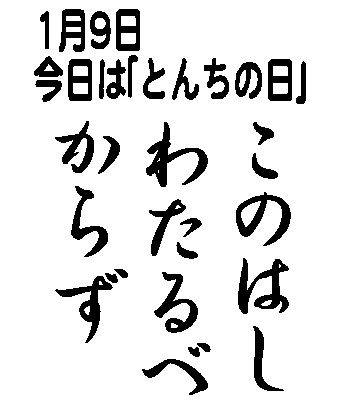 1月9日
今日は「とんちの日」
このはし
わたるべ
からず